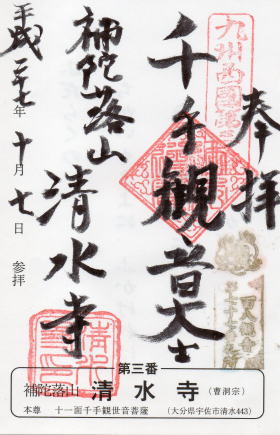 奉拝
九州西國第三
千手観音大士
補陀落山
清水寺
平成二十七年十月七日 参拝
第三番
補陀落山 清水寺 (曹洞宗)
本尊 十一面千手観世音菩薩 (大分県宇佐市清水443)